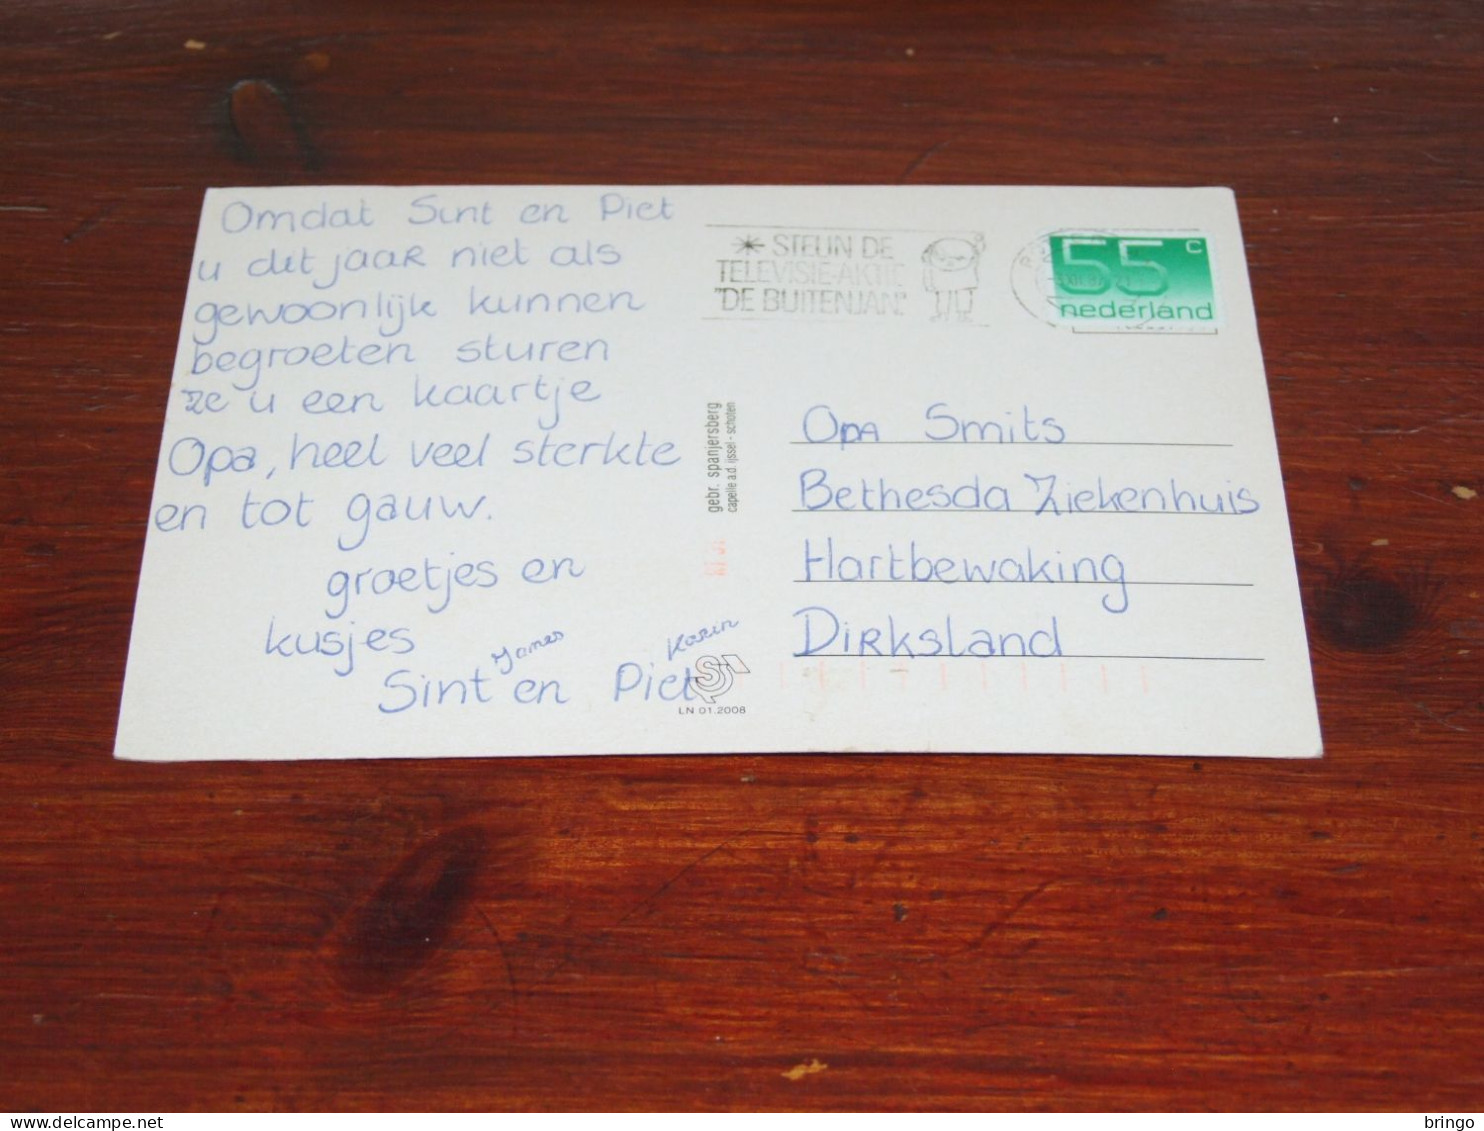 Omdat Sint en Piet
u dit jaar niet als
gewoonlijk kunnen
begroeten sturen
ze u een kaartje
Opa, heel veel sterkte
en tot gauw.
groetjes en
kusjes
James Karin
Sint en Piet
STEUN DE
TELEVISIE-AKTIE
"DE BUITENJAN"
55 c
nederland
gebr. spanjersberg
capelle a.d. ijssel - schoten
LN 01.2008
Opa Smits
Bethesda Ziekenhuis
Hartbewaking
Dirksland
bringo